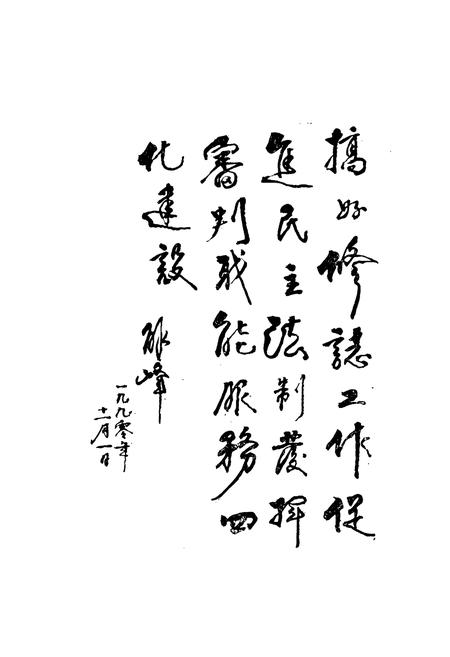 搞好修誌工作促
進民主法制發揮
審判职能服務四
化建設 峰
一九九零年
十一月一日